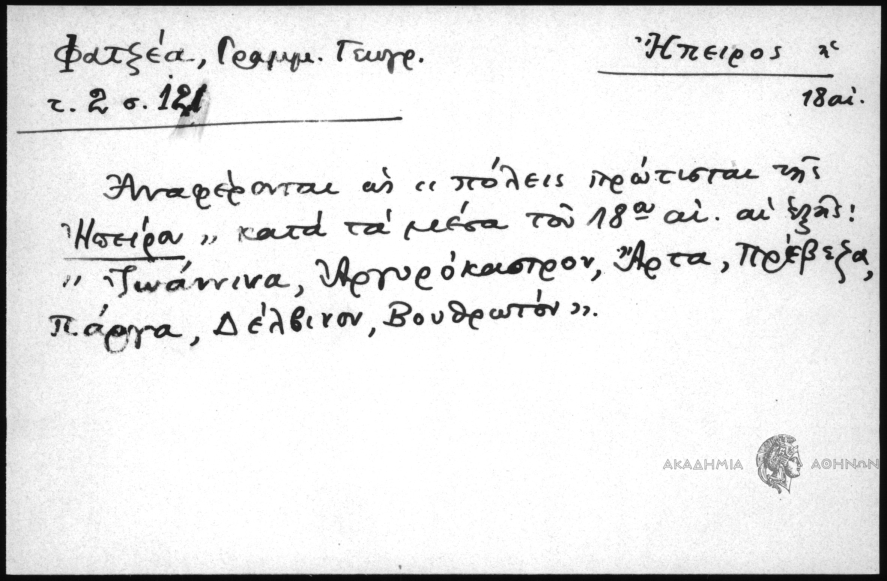 Φατζέα, Γραμμ. Γεωγρ.
τ. 2 σ. 121
Ἤπειρος
18 αἰ.
Ἀναφέρονται αἱ "πόλεις πρώτισται τῆς
Ἠπείρου" κατά τά μέσα τοῦ 18ου αἰ. αἱ ἑξῆς:
"Ἰωάννινα, Ἀργυρόκαστρον, Ἄρτα, Πρέβεζα,
Πάργα, Δέλβινον, Βουθρωτόν".
ΑΚΑΔΗΜΙΑ ΑΘΗΝΩΝ